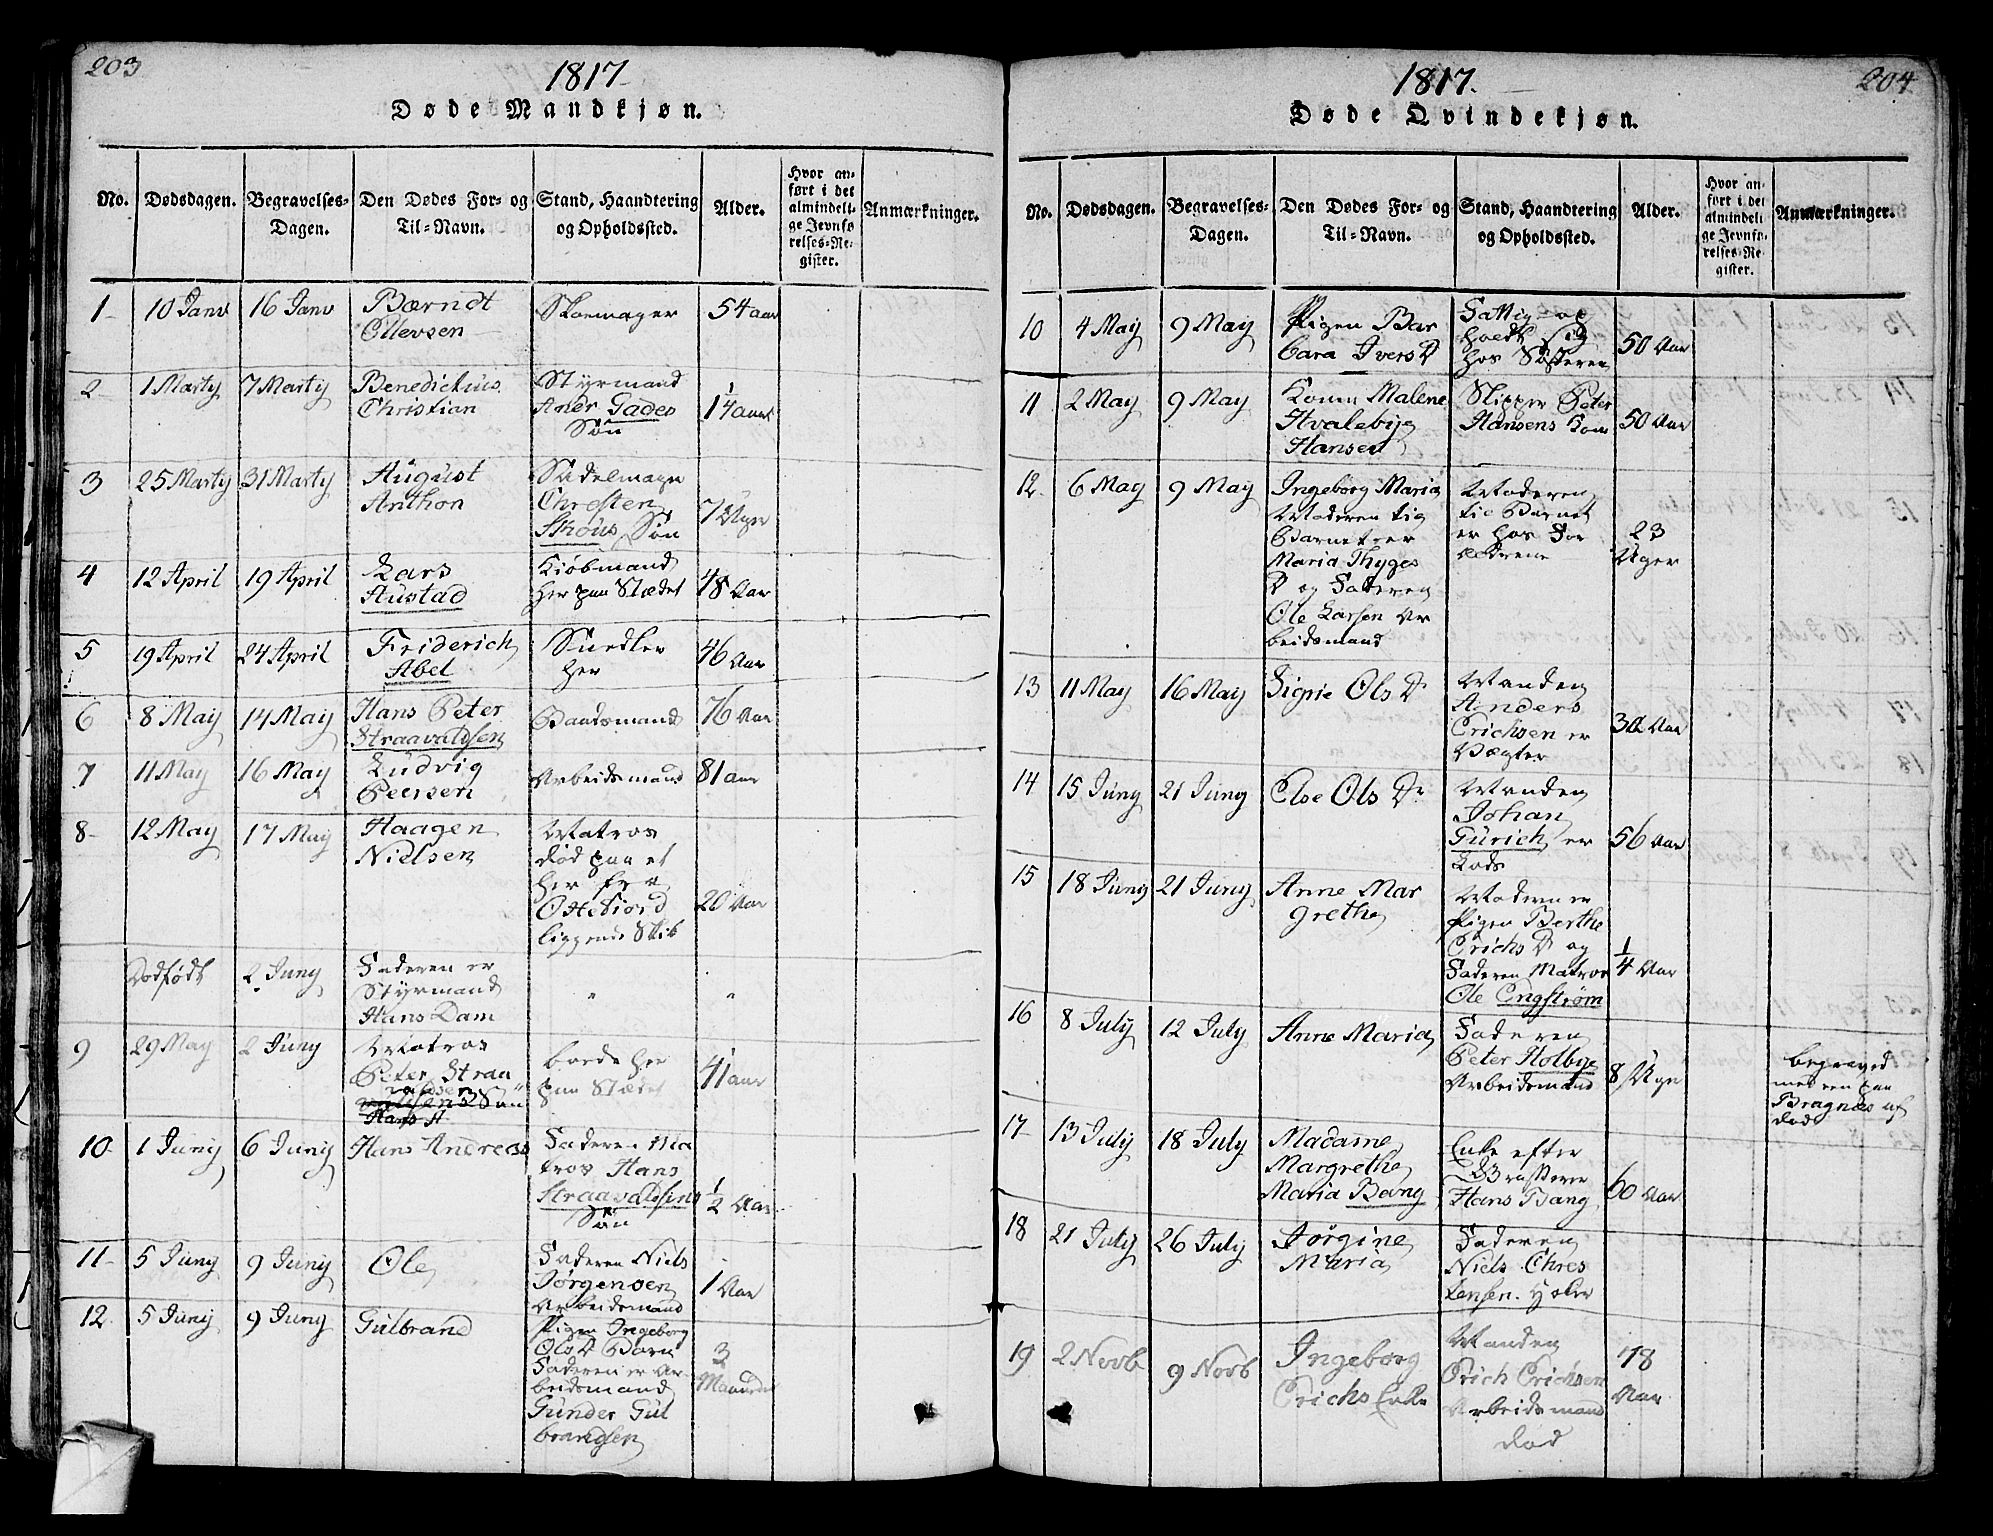 203
1817
Døde Mandkjøn.
No. Dødsdagen. Begravelses-Dagen. Den Dødes For- og Til-Navn. Stand, Haandtering og Opholdssted. Alder. Hvor anført i det almindelige Jevnførelses-Register. Anmærkninger.
1 10 Janv 16 Janv Bærndt Skoemager 54 aar
Ellevsen
2 1 Marty 7 Marty Benedichus Styrmand
Christian Andr Gades 1 1/4 aar
Søn
3 25 Marty 31 Marty August Sadelmagr
Anthon Chresten 7 Uger
Skous Søn
4 12 April 19 April Lars Kiøbmand 48 Aar
Austad her paa Stædet
5 19 April 24 April Friderich Snedker 46 Aar
Abel her
6 8 May 14 May Hans Peter Baadsmand 76 Aar
Straavaldsen
7 11 May 16 May Ludvig Arbeidsmand 81 aar
Peersen
8 12 May 17 May Haagen Matros
Nielsen død paa et
her for
liggende Skib 20 Aar
Dødfødt 2 Juny Faderen er
Styrmand " "
Hans Dam
9 29 May 2 Juny Matros boede her 41 aar
Peter Straa paa Stædet
Søn
10 1 Juny 6 Juny Hans Andreas Faderen Ma
tros Hans
Straavaldsens 1/2 Aar
Søn
11 5 Juny 9 Juny Ole Faderen Niels
Jørgensen 1 Aar
Arbeidsmand
12 5 Juny 9 Juny Gulbrand Pigen Ingeborg
Ols D Barn 3
Faderen er Ar Maaneder
beidsmand
Gunder Gul
brandsen
204
1817.
Døde Qvindekjøn.
No. Dødsdagen. Begravelses-Dagen. Den Dødes For- og Til-Navn. Stand, Haandtering og Opholdssted. Alder. Hvor anført i det almindelige Jevnførelses-Register. Anmærkninger.
10 4 May 9 May Pigen Bar Fattig op
bara Ivers D holdt sig 50 Aar
hos Søsteren
11 2 May 9 May Konen Malene Skipper Peter
Hvalebye Hansens Kone 50 Aar
Hansen
12. 6 May 9 May Ingeborg Maria Moderen
Moderen til til Barnet
Barnet er er hos For 23
Maria Thyges ældrene Uger
D og Faderen
Ole Larsen Ar
beidsmand
13 11 May 16 May Signie Ols D Manden
Anders 30 Aar
Erichsen er
Vægter
14 15 Juny 21 Juny Else Ols D Manden
Johan
Gurich er 56 Aar
Lods
15 18 Juny 21 Juny Anne Mar Moderen er
grethe Pigen Berthe
Erichs D og 1/4 Aar
Faderen Matros
Ole Engstrøm
16 8 July 12 July Anne Maria Faderen
Peter Holbye 8 Uger begraved
Arbeidsmand men en paa
Bragnæs af
død
17 13 July 18 July Madame Enke efter
Margrethe
Maria Bang Hans Bang 60 Aar
18 21 July 26 July Jørgine Faderen
Maria Niels Chres
tensen.
19 2 Novb 9 Novb Ingeborg Manden 78
Erichs Enke Erich Erichsen Aar
Arbeidsmand
død